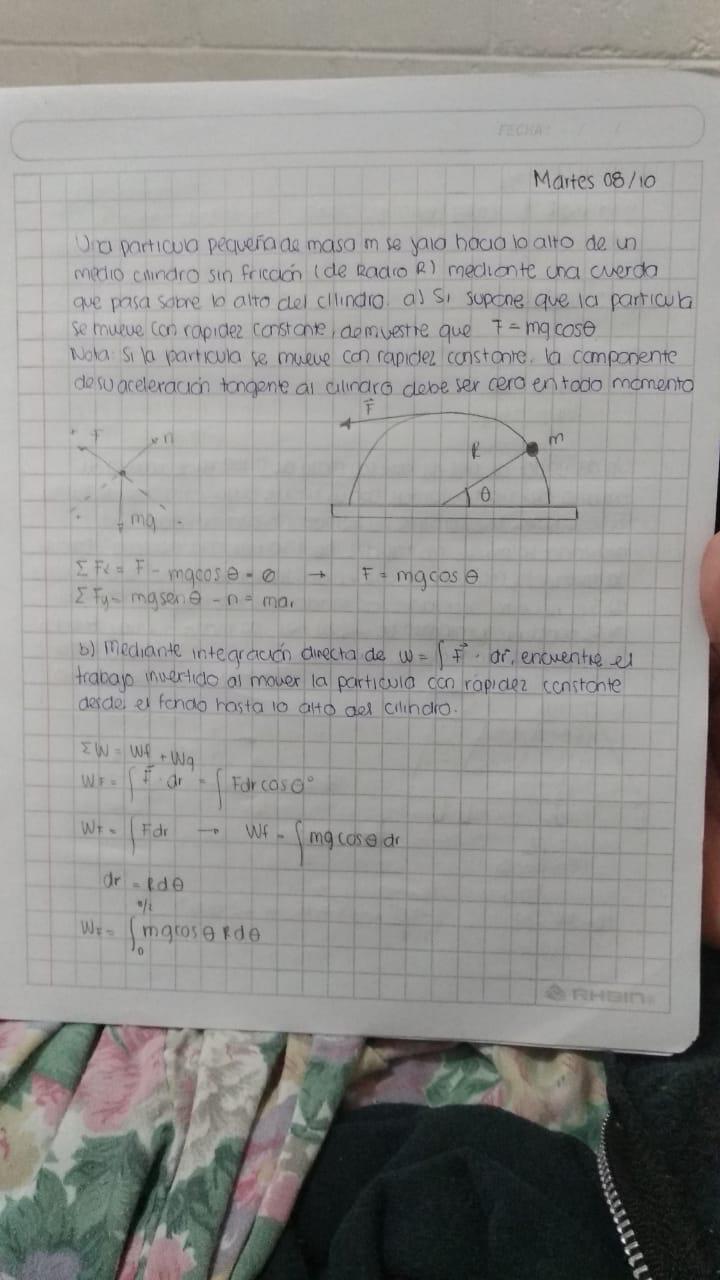 FECHA: / /
Martes 08/10
Una particula pequeña de masa m se jala hacia lo alto de un
medio cilindro sin fricción (de Radio R) mediante una cuerda
que pasa sobre lo alto del cilindro. a) Si supone que la particula
se mueve con rapidez constante, demuestre que F = mg cosθ
Nota: Si la particula se mueve con rapidez constante, la componente
de su aceleración tangente al cilindro debe ser cero en todo momento
F n
mg
F⃗ R m
θ
ΣFx = F - mgcosθ = 0 → F = mgcosθ
ΣFy = mgsenθ - n = mar
b) Mediante integración directa de w = ∫ F⃗ · dr, encuentre el
trabajo invertido al mover la particula con rapidez constante
desde el fondo hasta lo alto del cilindro.
ΣW = Wf + Wg
WF = ∫ F⃗ · dr = ∫ Fdr cos0°
WF = ∫ Fdr → Wf = ∫ mg cosθ dr
dr = Rdθ
WF = ∫₀ mgcosθ Rdθ
RHEIN